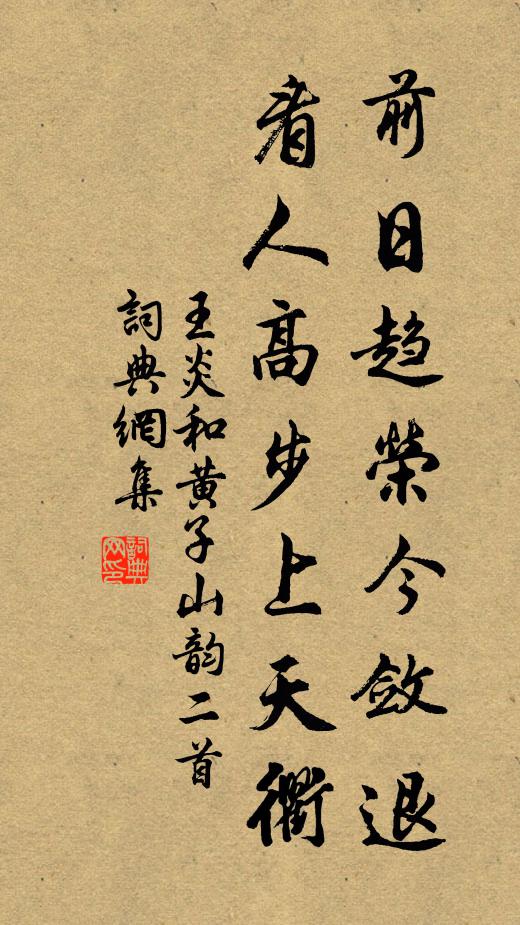 前日趋榮今斂退
看人高步上天衢
王炎和黄子山韵二首
詞典網集
詞典網印